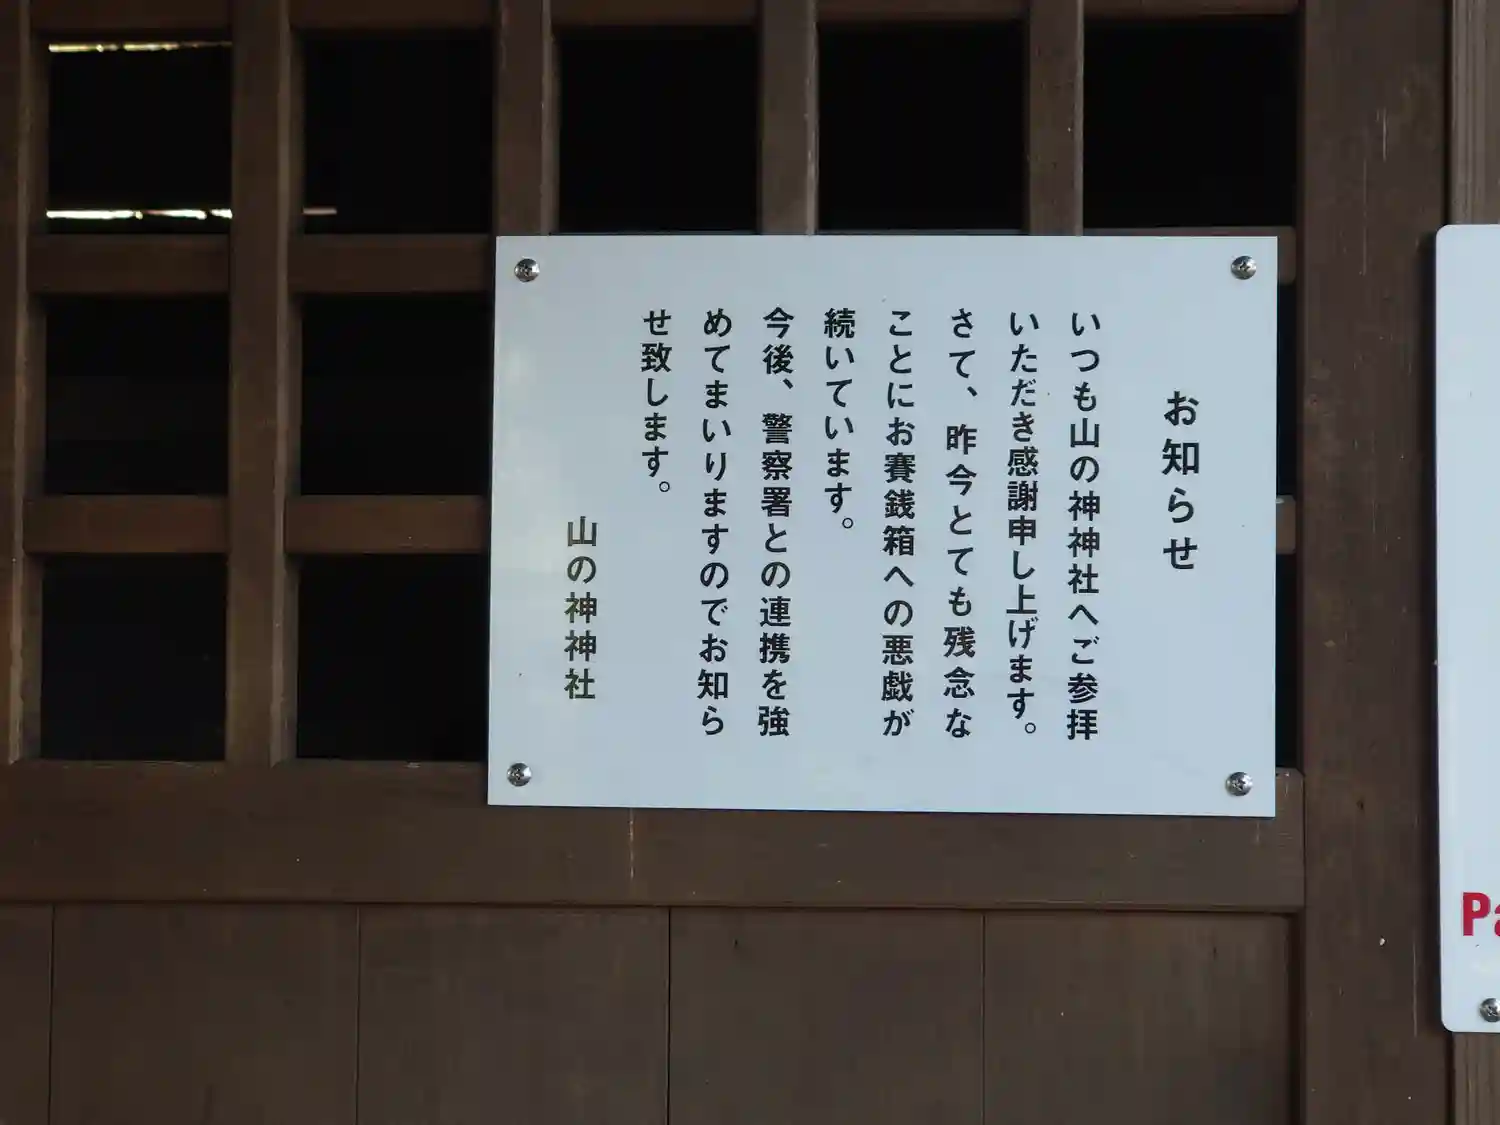 お知らせ
いつも山の神神社へご参拝
いただき感謝申し上げます。
さて、昨今とても残念な
ことにお賽銭箱への悪戯が
続いています。
今後、警察署との連携を強
めてまいりますのでお知ら
せ致します。
山の神神社
Pa